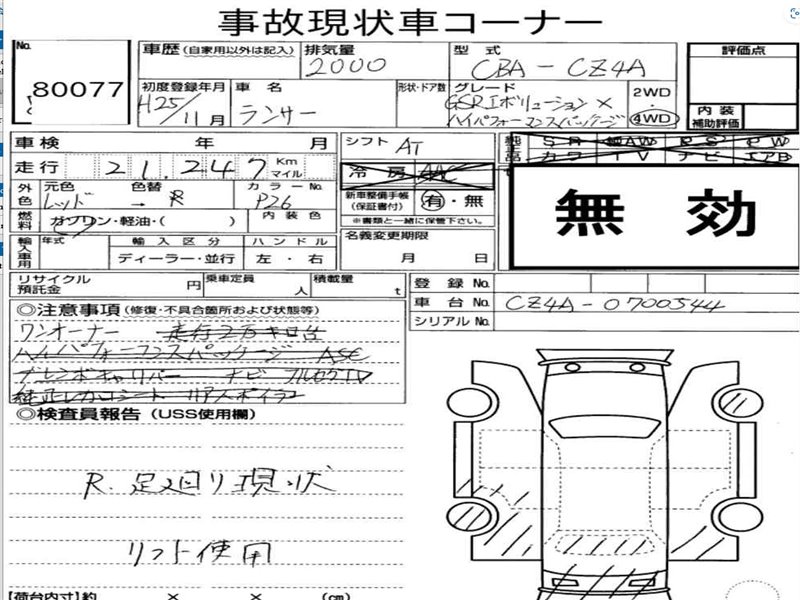 事故現状車コーナー
No. 80077
車歴 (自家用以外は記入)
排気量 2000
型式 CBA - CZ4A
評価点
初度登録年月 H25/11月
車名 ランサー
形状・ドア数
グレード GSRエボリューションX
ハイパフォーマンスパッケージ
2WD
・
4WD
内装
補助評価
車検 年 月
シフト AT
純正品 SR 純AW PS PW
カワ TV ナビ エアB
走行 21,247 Km マイル
冷房 AAC
外色 元色 レッド 色替 → R カラーNo. P26
新車整備手帳
(保証書付) 有・無
※書類と一緒に保管下さい。
無効
燃料 ガソリン・軽油・( ) 内装色
輸入車用 年式 輸入区分 ハンドル
ディーラー・並行 左・右
名義変更期限
月 日
リサイクル
預託金 円
乗車定員 人
積載量 t
登録No.
車台No. CZ4A-0700544
シリアルNo.
◎注意事項(修復・不具合箇所および状態等)
ワンオーナー 走行2万キロ台
ハイパフォーマンスパッケージ ASC
ブレンボキャリパー ナビ フルセグTV
純正レカロシート リアスポイラー
◎検査員報告 (USS使用欄)
R.足廻り現状
リフト使用
【荷台内寸】約 × × (cm)